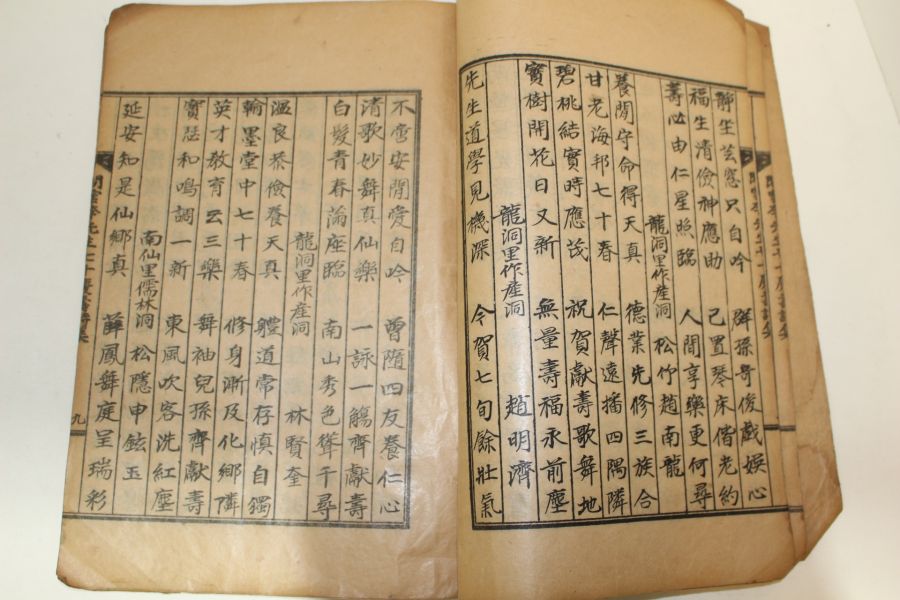 聊坐芸窓只自吟 群孫奇俊戱娛心
福生清儉神應助 已置琴床偕老約
壽必由仁星照臨 人間享樂更何尋
龍洞里作產洞 松竹趙南龍
養閒守命得天真 德業先修三族合
甘老海邦七十春 仁聲遠播四隅隣
碧桃結實時應茂 祝賀獻壽歌舞地
寶樹開花日又新 無量壽福永前塵
龍洞里作產洞 趙明濟
先生道學見機深 今賀七旬餘壯氣
不啻安閒愛自吟 曾隨四友養仁心
清歌妙舞真仙樂 一詠一觴齊獻壽
白髮青春滿座臨 南山秀色聳千尋
龍洞里作產洞 林賢奎
溫良恭儉養天真 軆道常存愼自獨
翰墨堂中七十春 修身漸及化鄉隣
英才敎育云三樂 舞袖兒孫齊獻壽
寶瑟和鳴調一新 東風吹客洗紅塵
南仙里儒林洞 松隱申鉉玉
延安知是仙鄉真 薛鳳舞庭呈瑞彩
九